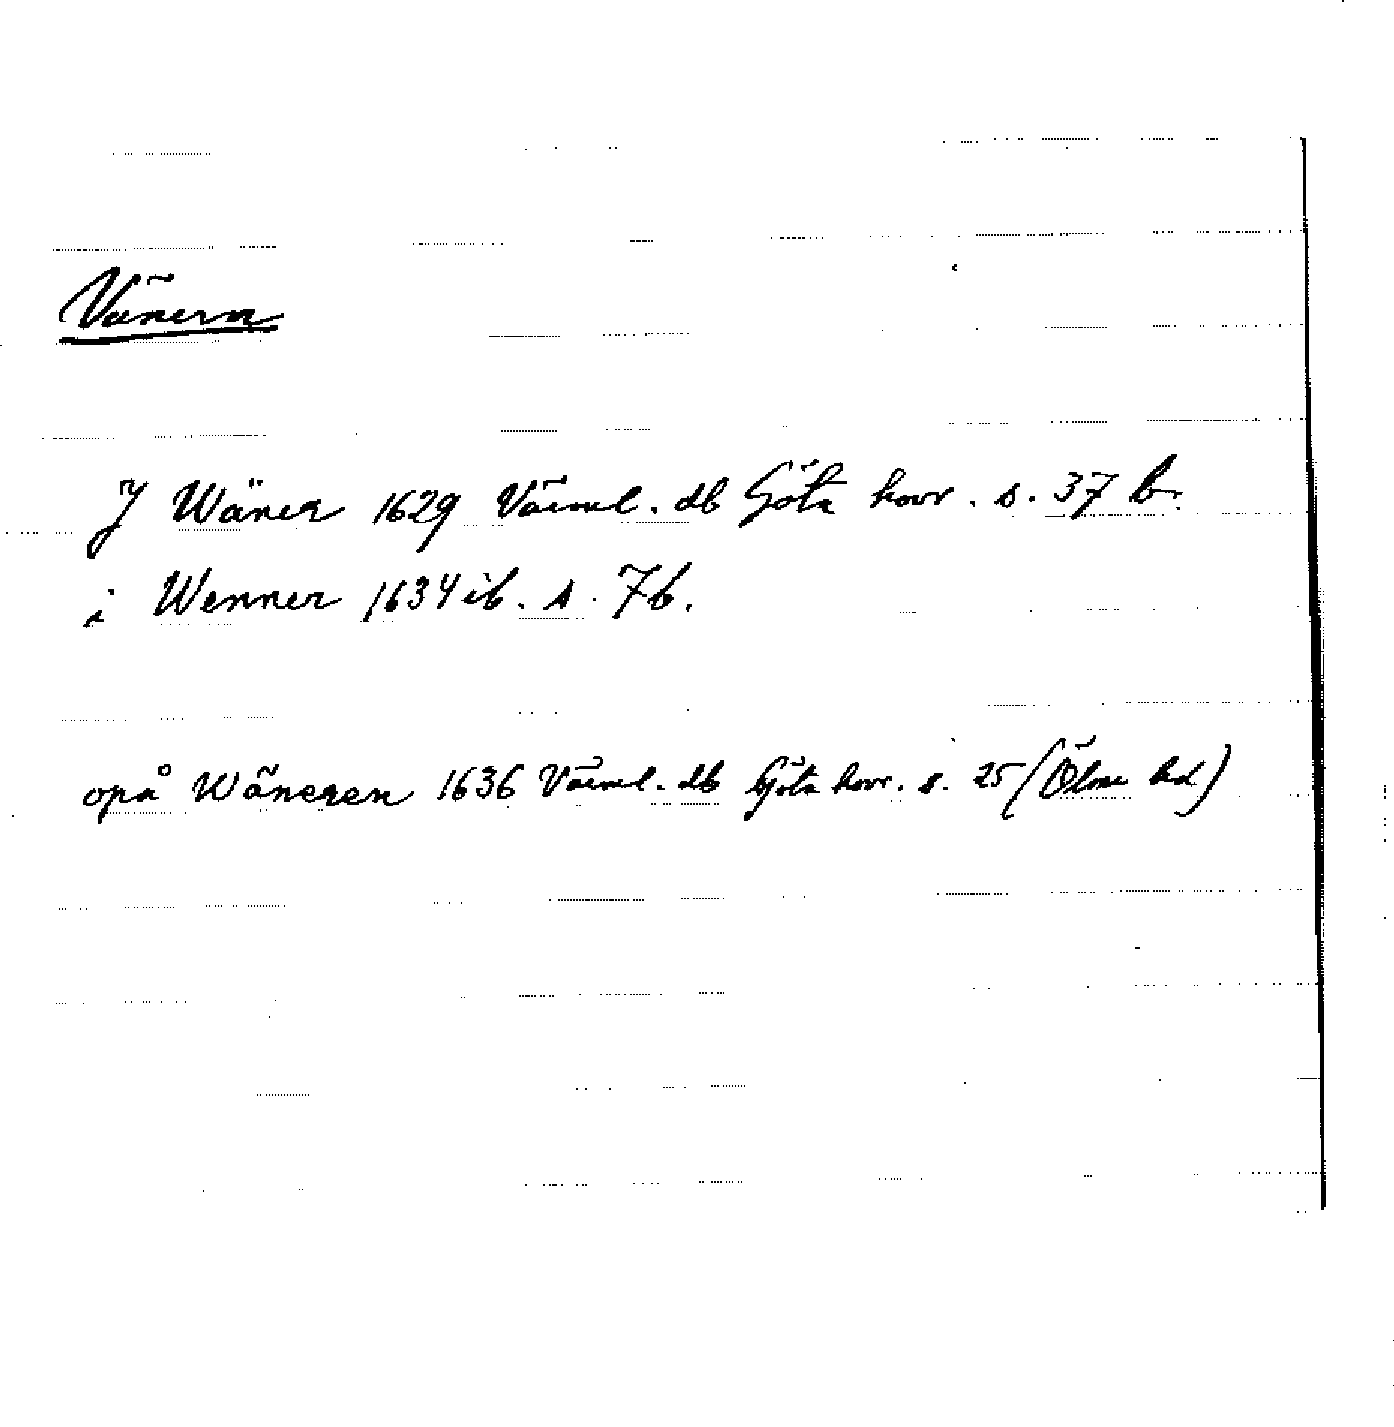 Vänern
J Wäner 1629 Värml. db Göta hovr. s. 37 b.
i Wenner 1634 ib. s. 7b.
opå Wäneren 1636 Värml. db Göta hovr. s. 25 (Ölme hd)